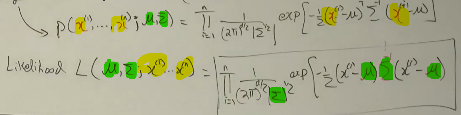 p(x⁽¹⁾,...,x⁽ⁿ⁾; μ,Σ) = ∏ᵢ₌₁ⁿ 1/((2π)^(d/2) |Σ|^(1/2)) exp[-½(x⁽ⁱ⁾-μ)ᵀ Σ⁻¹ (x⁽ⁱ⁾-μ)]
Likelihood L(μ,Σ; x⁽¹⁾...x⁽ⁿ⁾) = ∏ᵢ₌₁ⁿ 1/((2π)^(d/2) |Σ|^(1/2)) exp[-½(x⁽ⁱ⁾-μ) Σ⁻¹ (x⁽ⁱ⁾-μ)